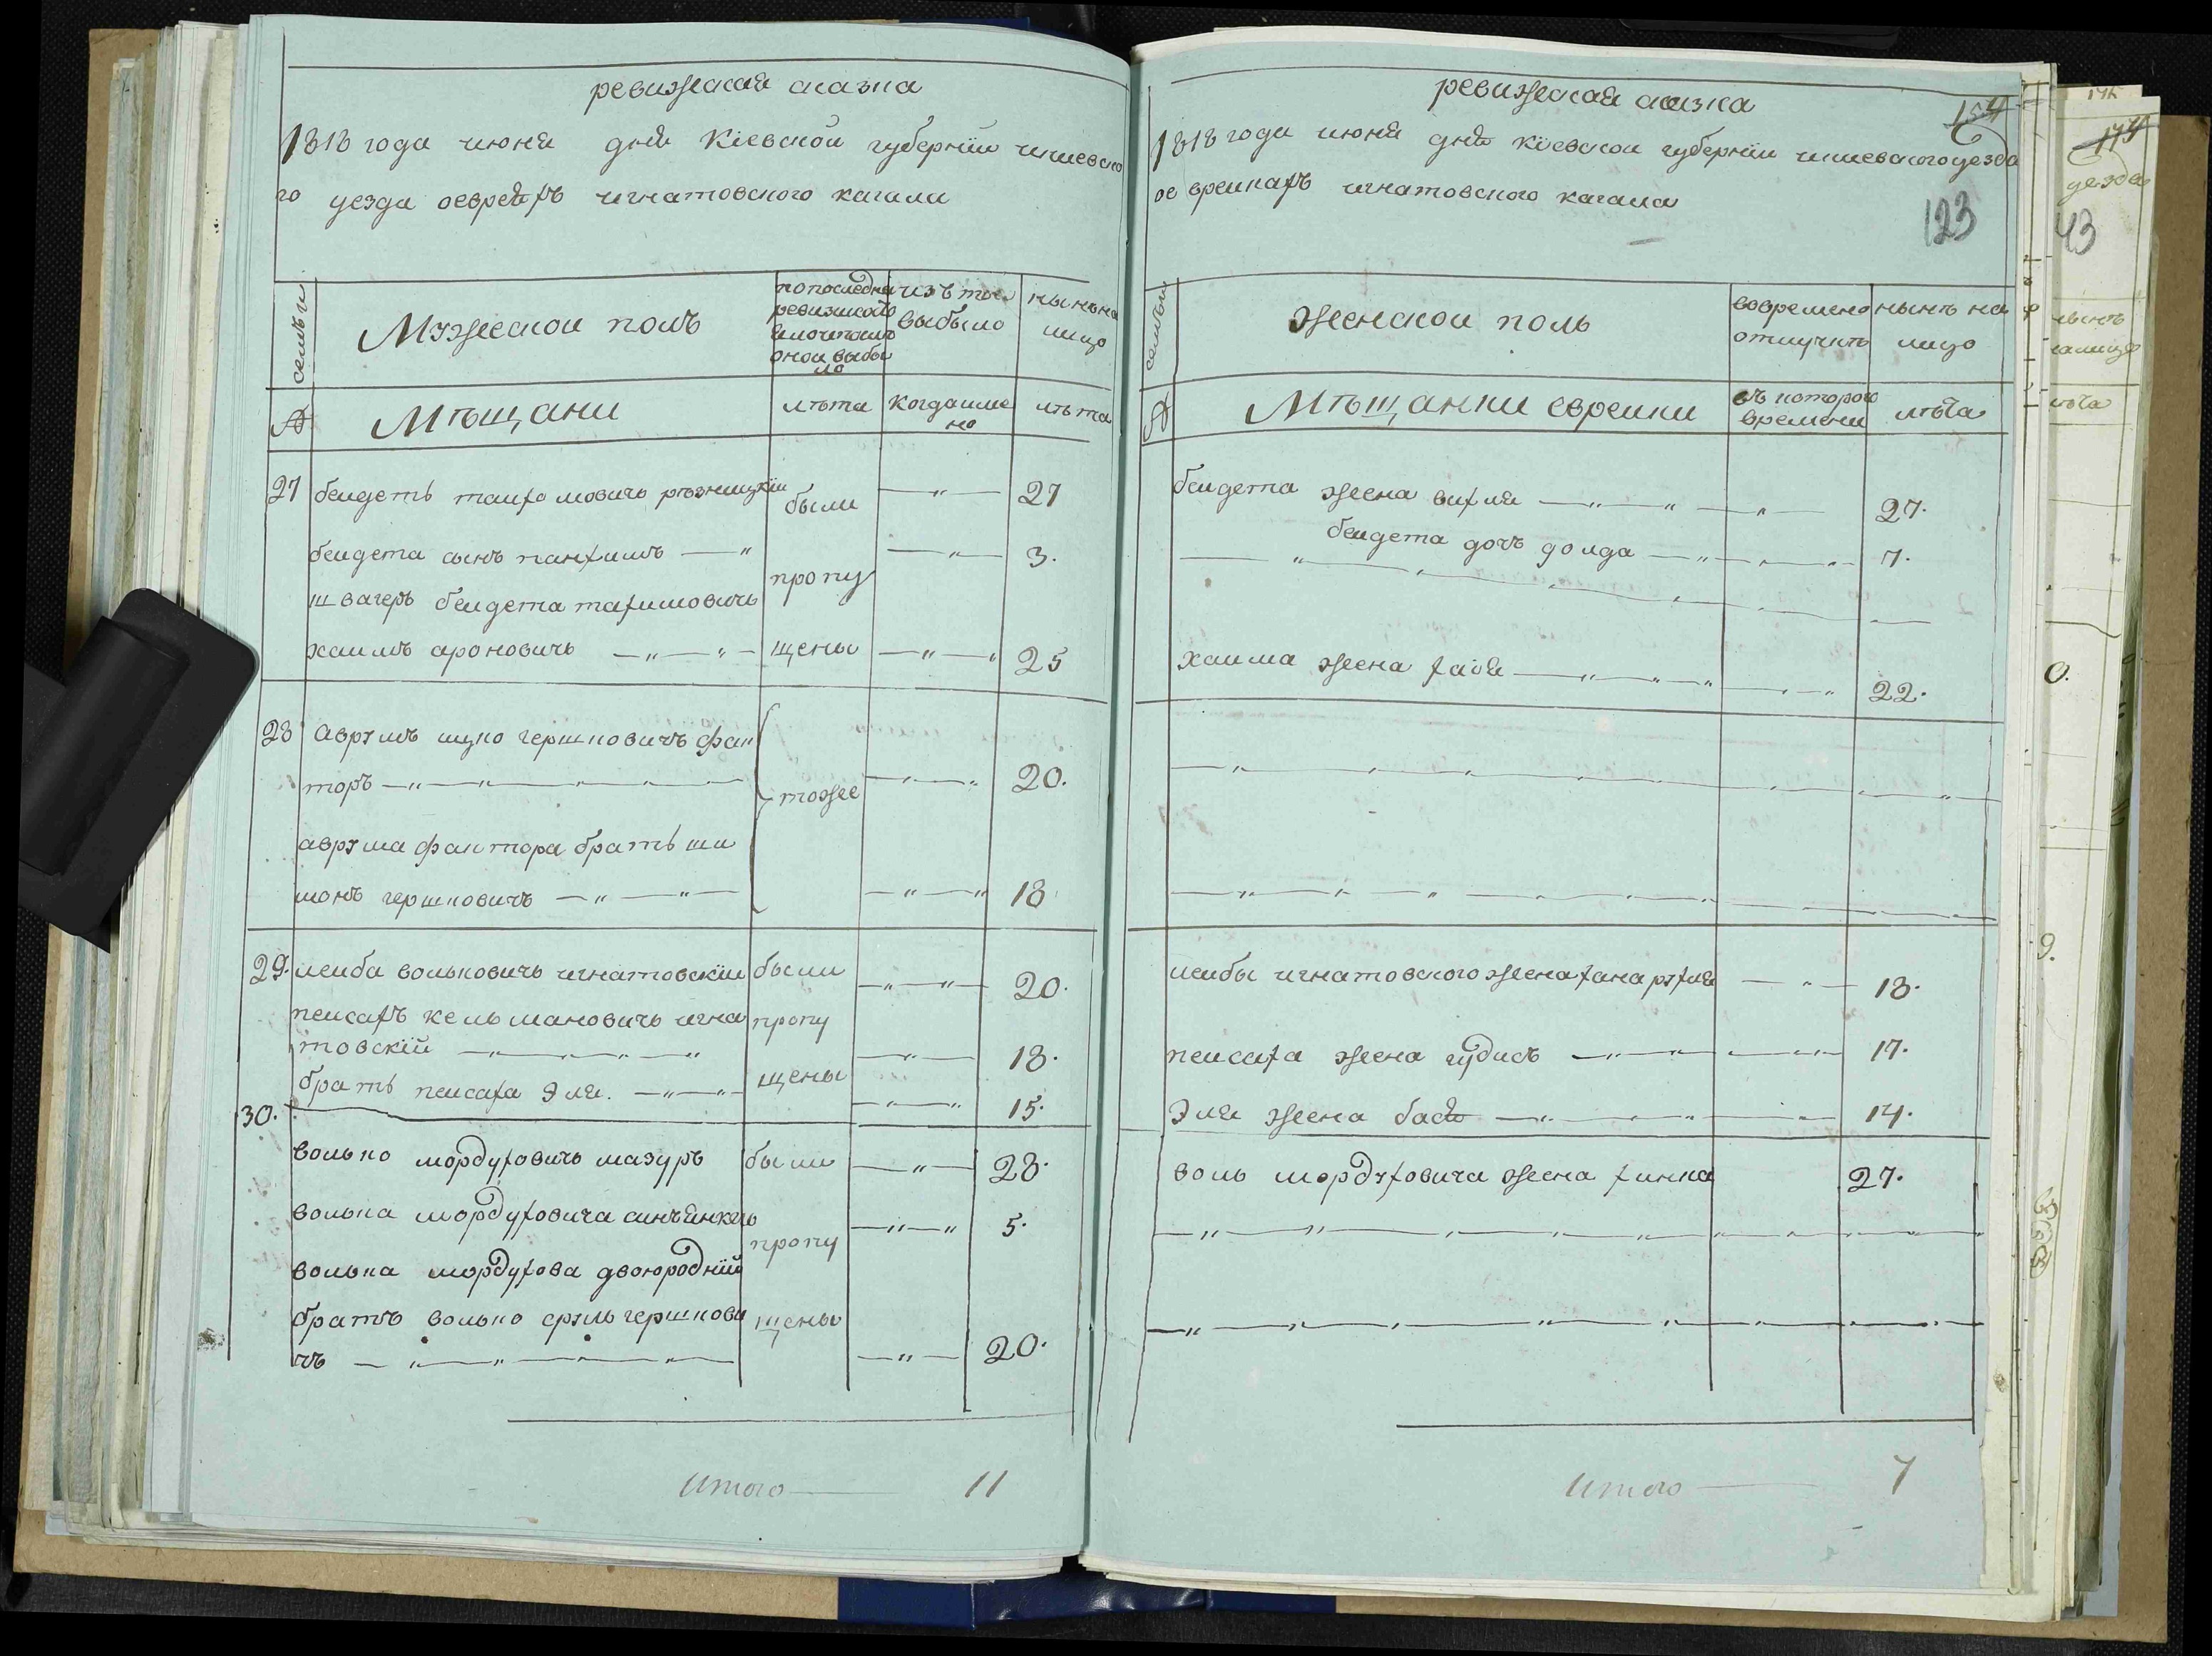 ревижская сказка
1818 года июня дня Кіевской губерніи чиевско
го уезда оевреяхъ игнатовского кагала
семьи
Мужеской полъ
попоследне
ревизиской
ло
изъ того
выбыло
нынѣ на
лицо
№
Мѣщани
лѣта
когда име
но
лѣта
27 бендетъ танхомовичъ резницкій были 27
бендета сынъ панхимъ 3.
пропу
швагеръ бендета тахимовичъ
хаимъ ароновичъ щены 25
28 Аврумъ шуко гершковичъ фак
торъ тожее 20.
аврума фактора братъ ши
монъ гершковичъ 18
29. лейба вольковичъ игнатовскіи были 20.
пейсахъ кельмановичъ игна пропу
товскій 18.
братъ пейсаха Эля. щены 15.
30.
волько мордуховичъ мазуръ были 28.
волька мордуховича синъ янкель 5.
пропу
волька мордухова двоюродній
братъ волько сруль гершкови щены
чъ 20.
Итого 11
ревижская сказка
154
1818 года июня дня кіевской губерніи чиевского уезда
ое вреикахъ игнатовского кагала
123
семьи
Женской поль
вовремено
отлучкѣ
нынѣ на
лицо
№
Мѣщанки евреики
съ которого
времени
лѣта
бендета жеена вихля 27.
бендета дочъ долда 7.
хаима жеена хаия 22.
лейбы игнатовского жеена ханарухля 18.
пейсаха жеена гудисъ 17.
Эля жеена бася 14.
воль мордуховича жеена хинка 27.
Итого 7
174
уезда
43
нынѣ
налицо
лѣта
0.
9.